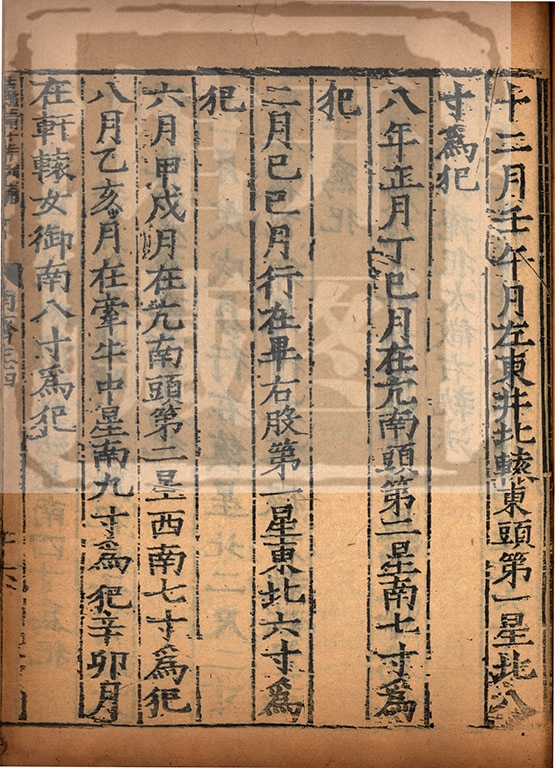 十二月壬午月在東井北轅東頭第一星北八
寸爲犯
八年正月丁巳月在亢南頭第二星南七寸爲
犯
二月己巳月行在畢右股第一星東北六寸爲
犯
六月甲戌月在亢南頭第二星西南七寸爲犯
八月乙亥月在牽牛中星南九寸爲犯辛卯月
在軒轅女御南八寸爲犯